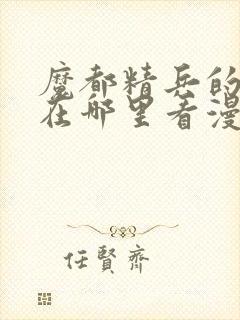 魔都精兵的
在哪里看漫
任賢齊